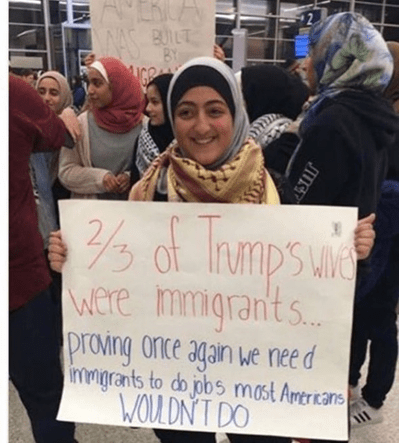 AMERICA
WAS BUILT
BY
IMMIGRA
2
2/3 of Trump's wives
were immigrants...
proving once again we need
immigrants to do jobs most Americans
WOULDN'T DO